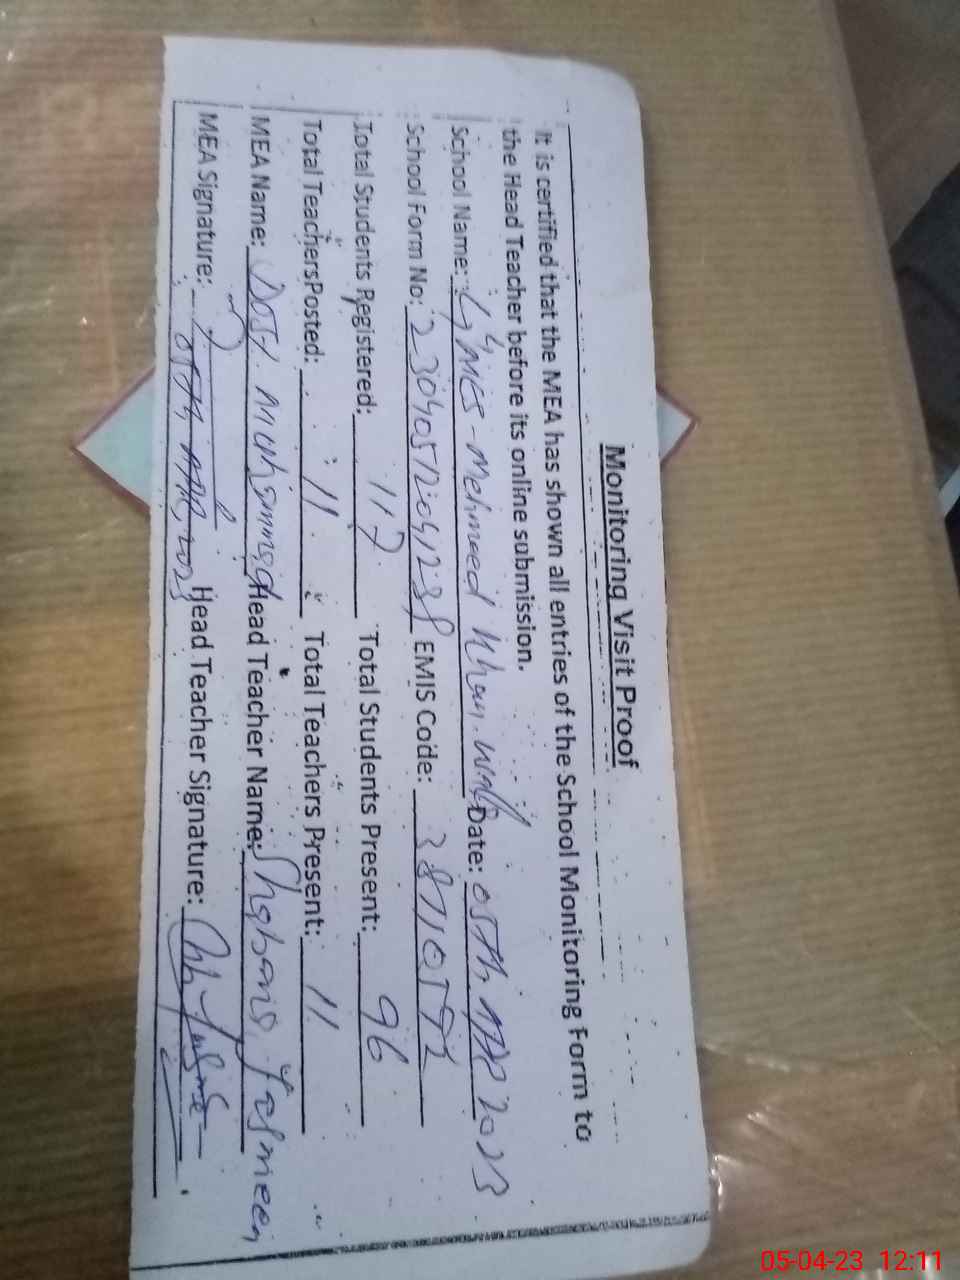 Monitoring Visit Proof
It is certified that the MEA has shown all entries of the School Monitoring Form to
the Head Teacher before its online submission.
School Name: GMES-Mehmood Khan Date: 05TH APR 2023
School Form No: EMIS Code:
Total Students Registered: 117 Total Students Present: 96
Total TeachersPosted: 11 Total Teachers Present: 11
MEA Name: DOST MUHAMMAD Head Teacher Name: Shabana Yasmeen
MEA Signature: 05TH APR, 2023 Head Teacher Signature:
05-04-23 12:11